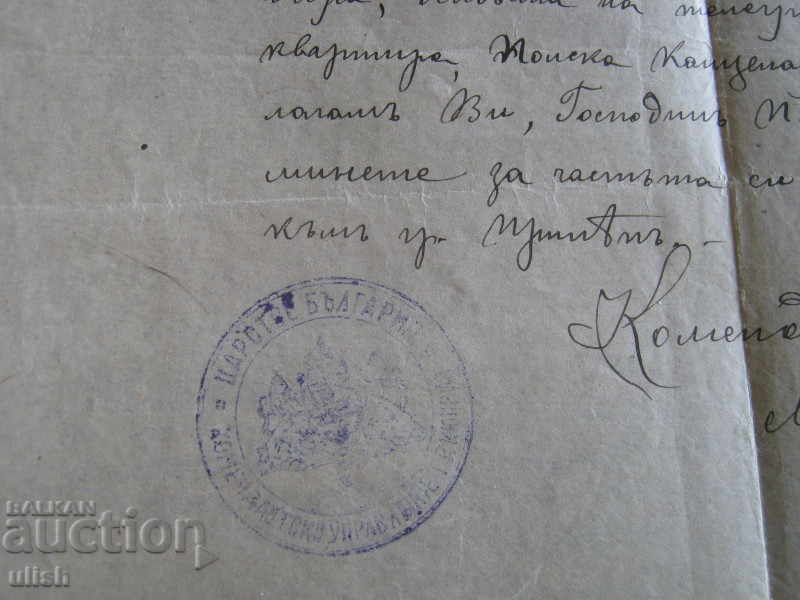 на телегр
квартира, Полска Канцела
лагамъ Ви, Господинъ П
минете за частьта си
къмъ гр. Прилѣпъ.-
Коменд
ЦАРСТВО БЪЛГАРИЯ
КОМЕНДАНТСКО УПРАВЛЕНИЕ
BALKAN
auction
ulish